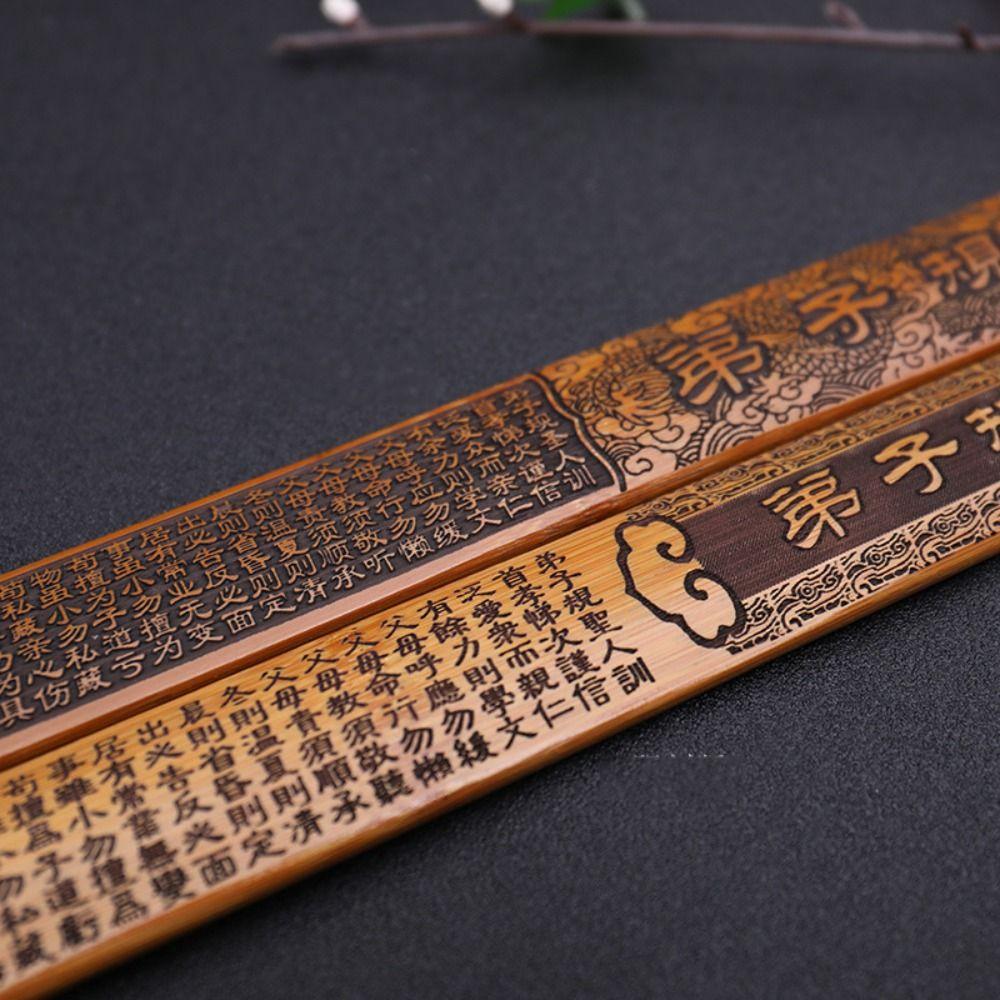 弟子規
弟子规圣人训
首孝悌次谨信
泛爱众而亲仁
有余力则学文
父母呼应勿缓
父母命行勿懒
父母教须敬听
父母责须顺承
冬则温夏则清
晨则省昏则定
出必告反必面
居有常业无变
事虽小勿擅为
苟擅为子道亏
物虽小勿私藏
苟私藏亲心伤
弟子規
弟子規聖人訓
首孝悌次謹信
泛愛衆而親仁
有餘力則學文
父母呼應勿緩
父母命行勿懶
父母教須敬聽
父母責須順承
冬則温夏則清
晨則省昏則定
出必告反必面
居有常業無變
事雖小勿擅爲
苟擅爲子道虧
小勿私藏